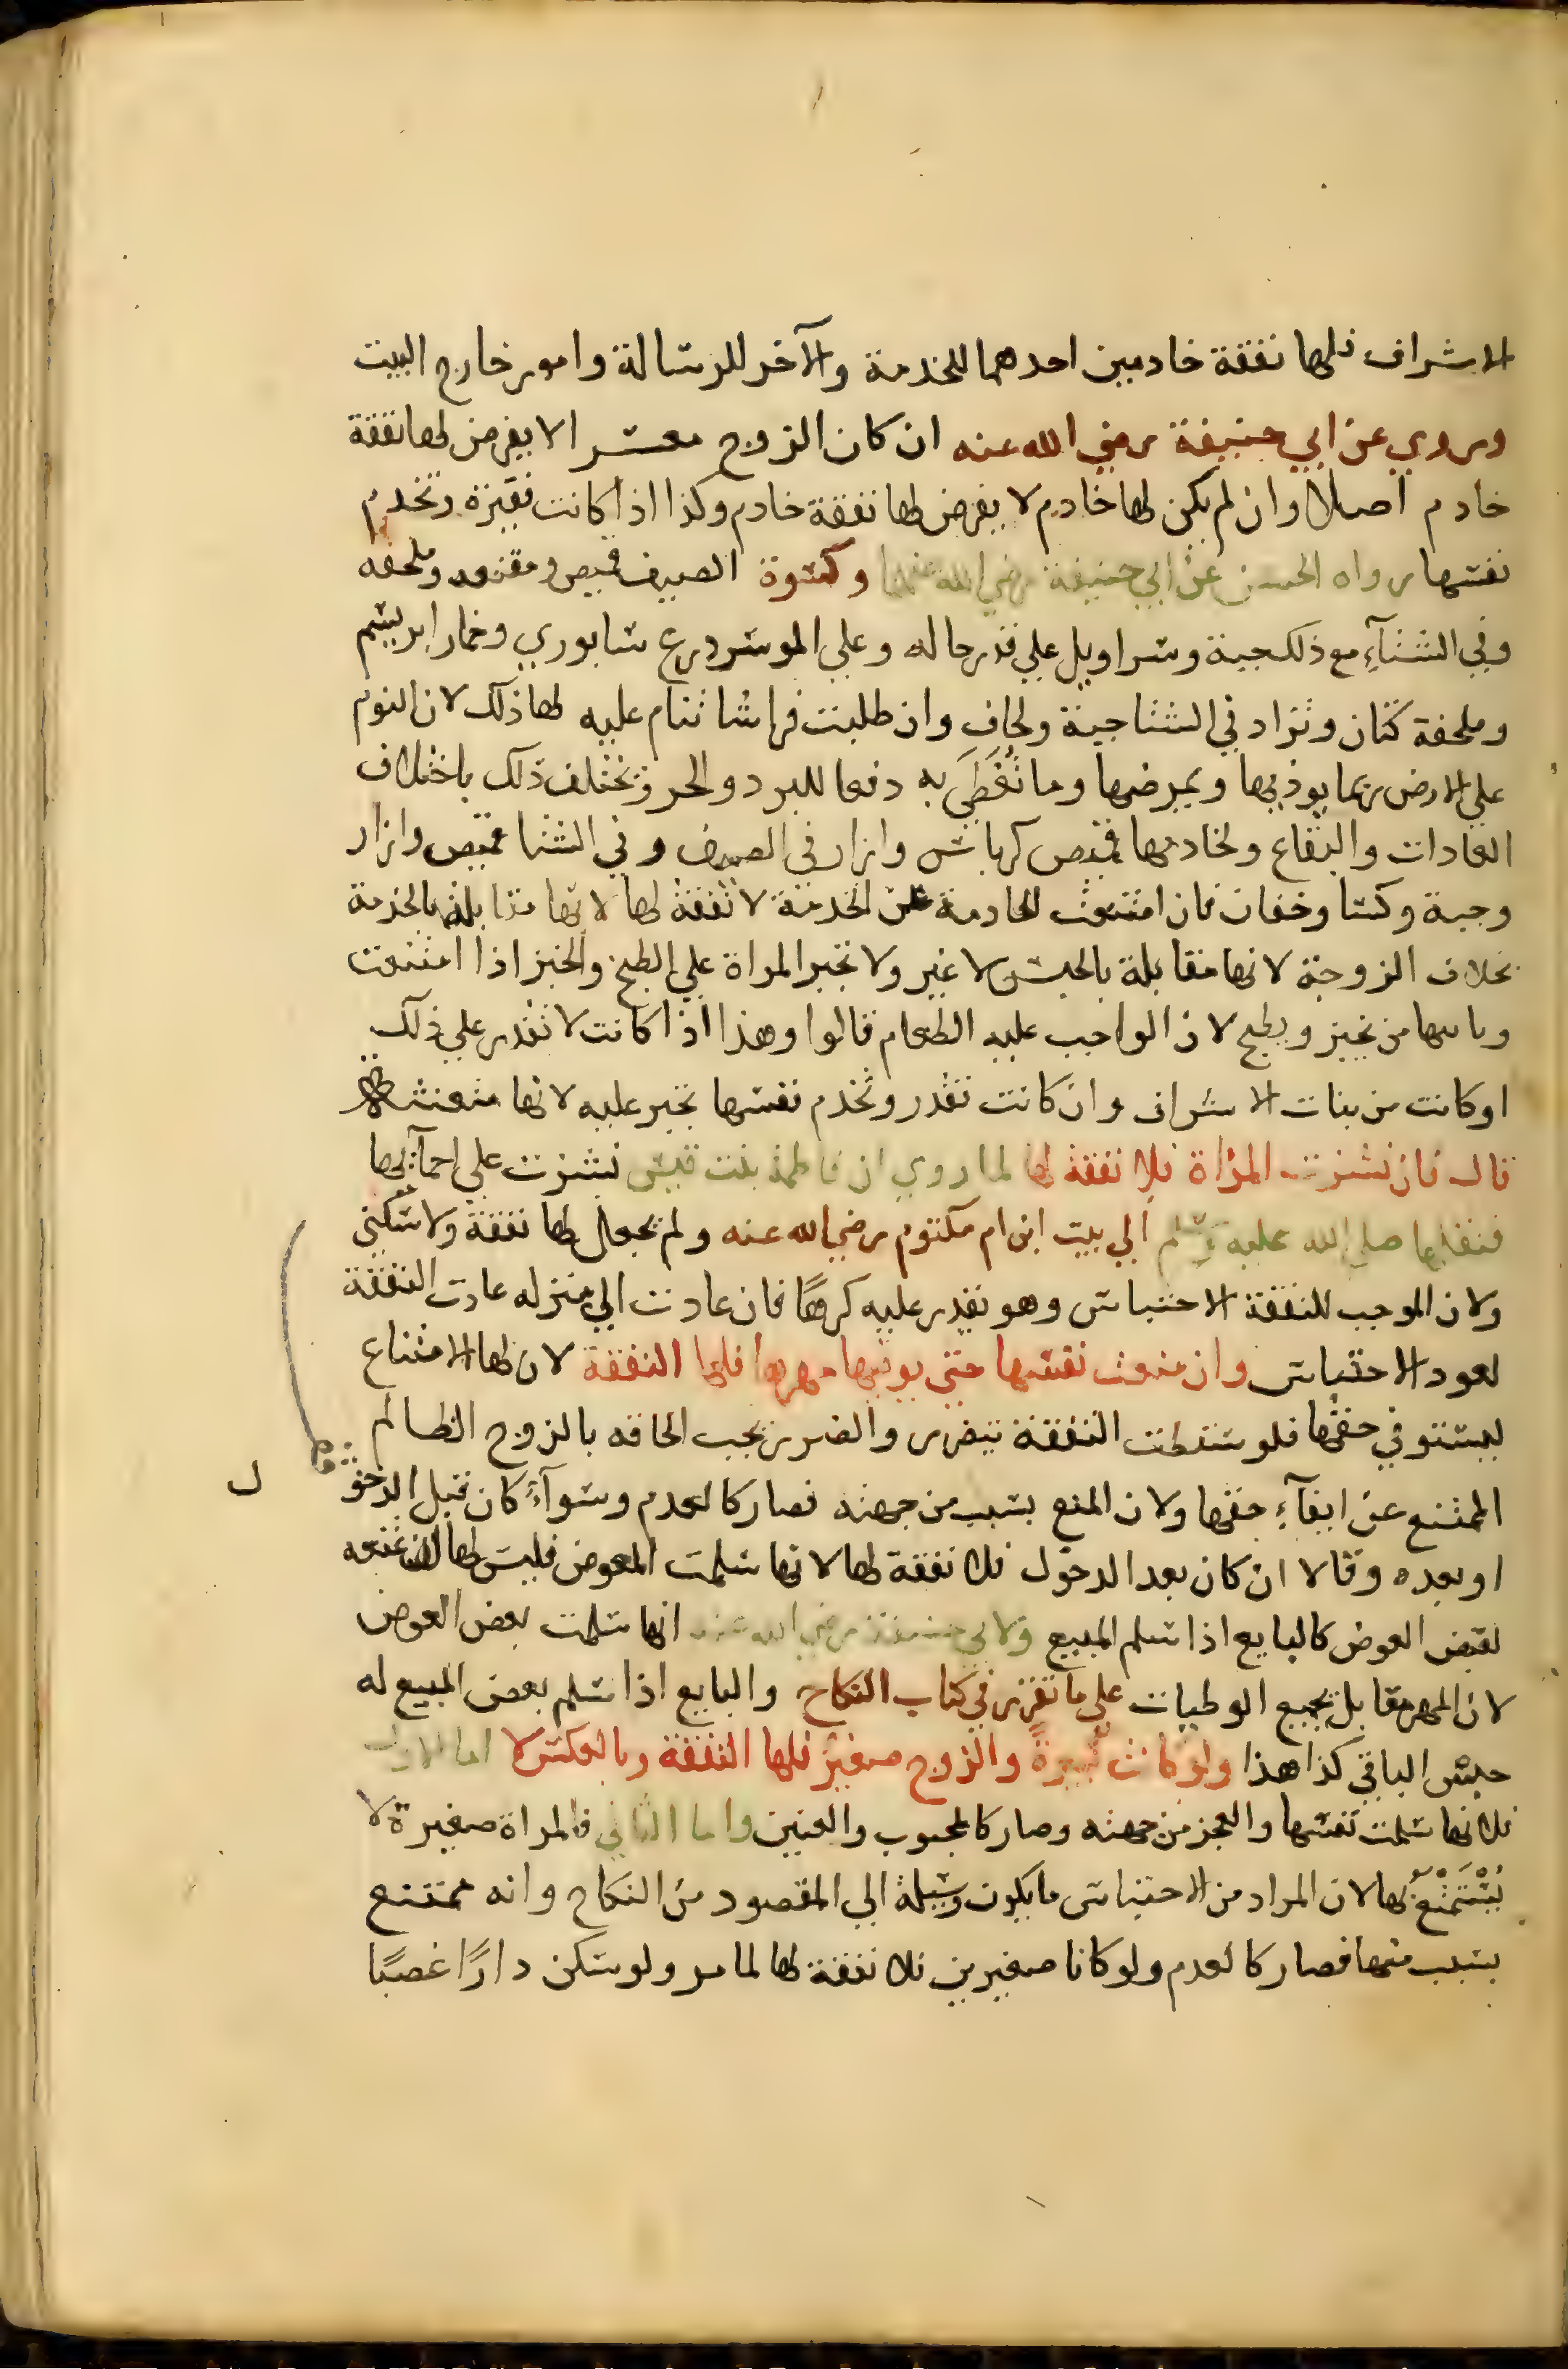 الاشراف فلها نفقة خادمين احدهما للخدمة والآخر للرسالة وامور خارج البيت
وروي عن ابي حنيفة رضي الله عنه ان كان الزوج معسرا لا يفرض لها نفقة
خادم اصلا وان لم يكن لها خادم لا يفرض لها نفقة خادم وكذا اذا كانت فقيرة وتخدم
نفسها رواه الحسن عن ابي حنيفة رضي الله عنهما وكسوة الصيف قميص ومقنعه وملحفه
وفي الشتآء مع ذلك جبة وسراويل على قدر حاله وعلي الموسر درع سابوري وخمار ابريسم
وملحفة كتان وتزاد في الشتا جبة ولحاف وان طلبت فراشا تنام عليه لها ذلك لان النوم
علي الارض ربما يوذيها ويمرضها وما تُغَطَّي به دفعا للبرد والحر وتختلف ذلك باختلاف
العادات والبقاع ولخادمها قميص كرباس وازار في الصيف وفي الشتا قميص وازار
وجبة وكسا وخفان فان امتنعت الخادمة عن الخدمة لا نفقة لها لانها مقابلة بالخدمة
بخلاف الزوجة لانها مقابلة بالحبس لا غير ولا تجبر المراة علي الطبخ والخبز اذا امتنعت
وياتيها من يخبز ويطبخ لان الواجب عليه الطعام قالوا وهذا اذا كانت لا تقدر علي ذلك
او كانت من بنات الاشراف وان كانت تقدر وتخدم نفسها تجبر عليه لانها متعنتة
قال فان نشزت المراة فلا نفقة لها لما روي ان فاطمة بنت قيس نشزت علي احمآئها
فنقلها صلي الله عليه وسلم الي بيت ابن ام مكتوم رضي الله عنه ولم يجعل لها نفقة ولا سكني
ولان الموجب للنفقة الاحتباس وهو يقدر عليه كرهًا فان عادت الي منزله عادت النفقة
لعود الاحتباس وان منعت نفسها حتي يوفيها مهرها فلها النفقة لان لها الامتناع
ليستوفي حقها فلو سقطت النفقة تتضرر والضرر يجب الحاقه بالزوج الظالم
الممتنع عن ايفآء حقها ولان المنع بسبب من جهته فصار كالعدم وسوآءً كان قبل الدخو
ل
او بعده وقالا ان كان بعد الدخول فلا نفقة لها لانها سلمت المعوض فليس لها ان تمنعه
لقبض العوض كالبايع اذا سلم المبيع ولابي حنيفة رضي الله عنه انها سلمت بعض العوض
لان المهر مقابل بجميع الوطيات علي ما تقرر في كتاب النكاح والبايع اذا سلم بعض المبيع له
حبس الباقي كذا هذا ولو كانت كبيرةً والزوج صغير فلها النفقة وبالعكس لا اما الاول
فلانها سلمت نفسها والعجز من جهته وصار كالمجبوب والعنين واما الثاني فالمراة صغيرة لا
يُسْتَمْتَعُ بها لان المراد من الاحتباس ما يكون وسيلة الي المقصود من النكاح وانه ممتنع
بسبب منها فصار كالعدم ولو كانا صغيرين فلا نفقة لها لما مر ولو سكن دارًا غصبًا